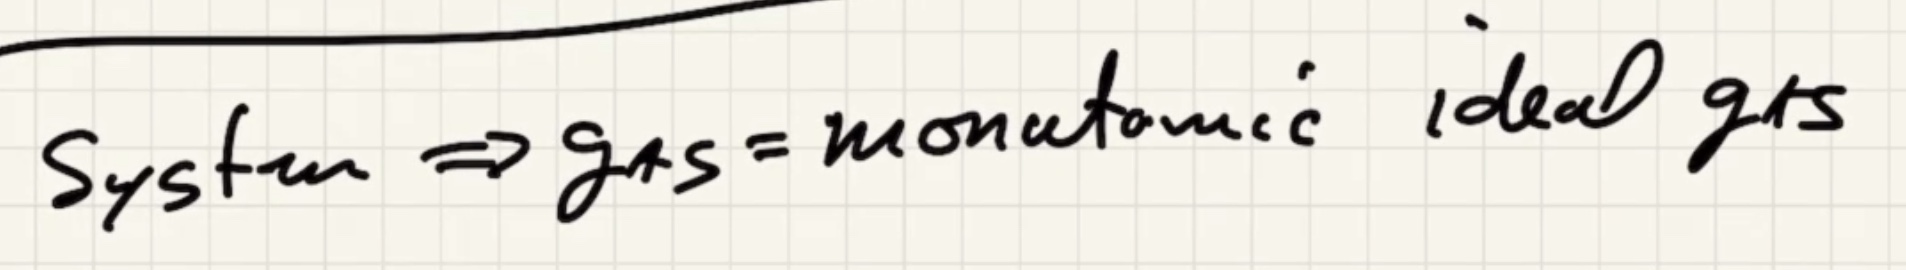 System ⇒ gas = monatomic ideal gas